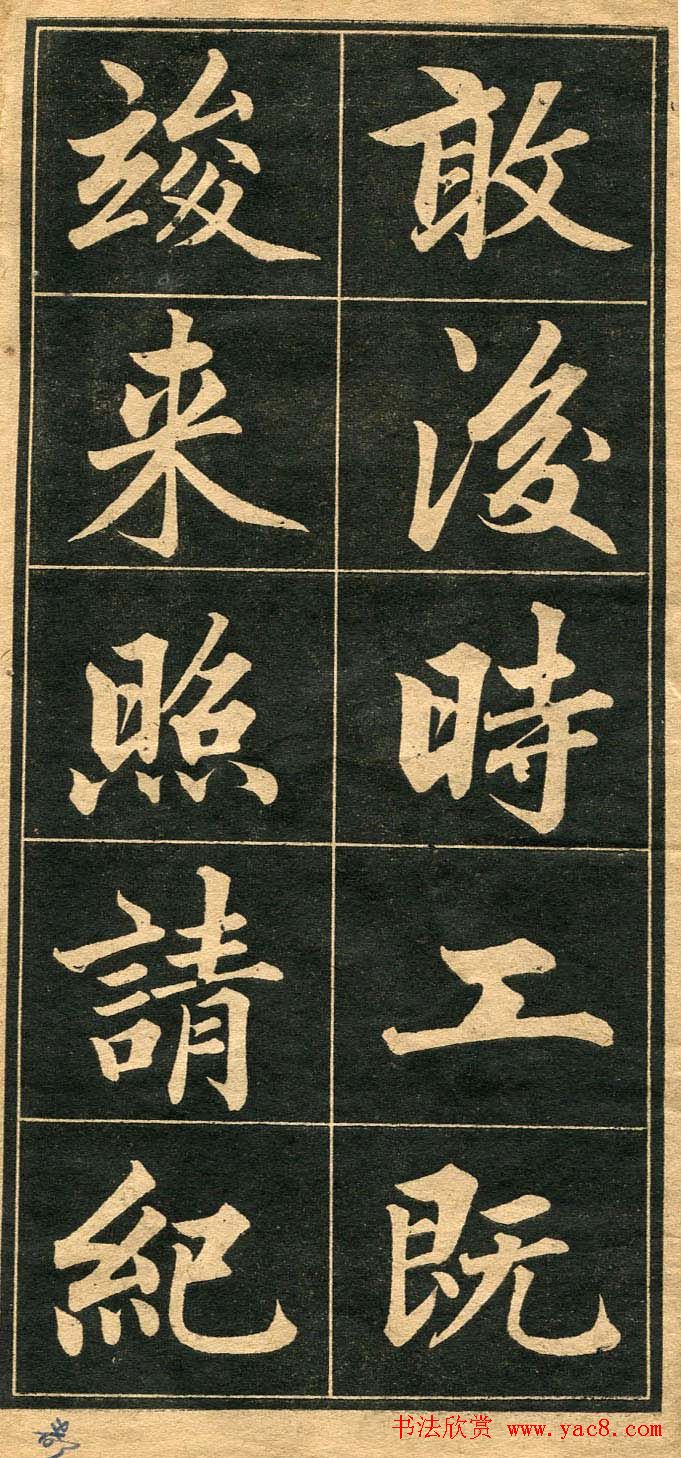 敢後時工既
竣来照請紀
书法欣赏 www.yac8.com